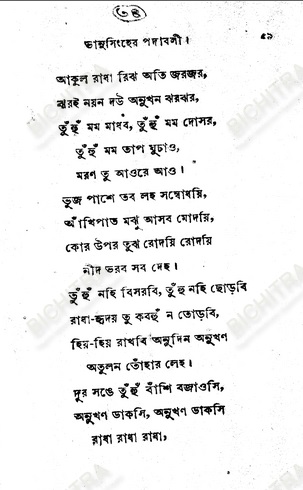 ৩৪
ভানুসিংহের পদাবলী। ৫৯
আকুল রাধা রিঝ অতি জরজর,
ঝরই নয়ন দউ অনুখন ঝরঝর,
তুঁহুঁ মম মাধব, তুঁহুঁ মম দোসর,
তুঁহুঁ মম তাপ ঘুচাও,
মরণ তু আওরে আও।
ভুজ পাশে তব লহ সম্বোধয়ি,
আঁখিপাত মঝু আসব মোদয়ি,
কোর উপর তুঝ রোদয়ি রোদয়ি
নীদ ভরব সব দেহ।
তুঁহুঁ নহি বিসরবি, তুঁহু নহি ছোড়বি
রাধা-হৃদয় তু কবহুঁ ন তোড়বি,
হিয়-হিয় রাখবি অনুদিন অনুখণ
অতুলন তোঁহার লেহ।
দূর সঙে তুঁহুঁ বাঁশি বজাওসি,
অনুখণ ডাকসি, অনুখণ ডাকসি
রাধা রাধা রাধা,
BICHITRA